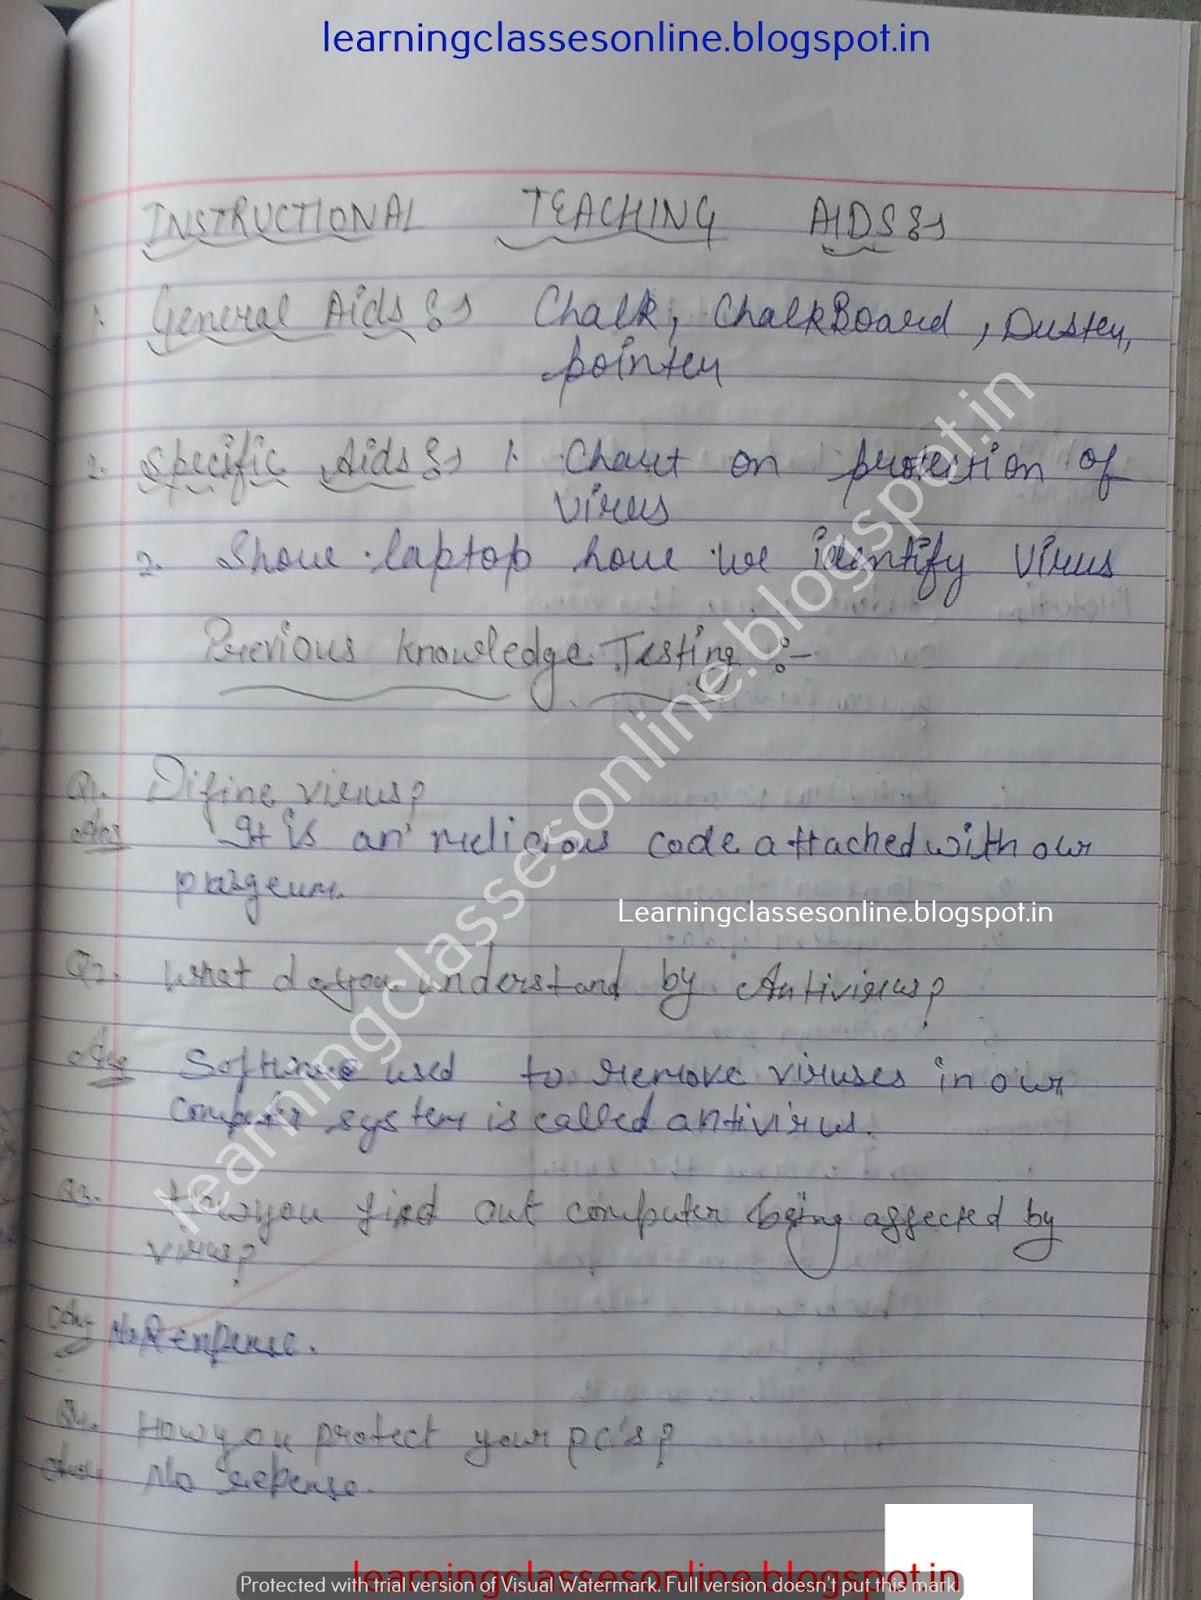 learningclassesonline.blogspot.in
INSTRUCTIONAL TEACHING AIDS:
1. General Aids: Chalk, ChalkBoard, Duster,
pointer
2. Specific Aids: 1. Chart on protection of
virus
2. Show laptop how we identify virus
Previous Knowledge Testing :-
Q1. Difine virus?
Ans It is an melicious code attached with our
Learningclassesonline.blogspot.in
Q2. What do you understand by Antivirus?
Ans Software used to remove viruses in our
computer system is called antivirus.
Q3. How you find out computer being affected by
virus?
Ans No Respense.
Q4. How you protect your pc's?
Ans No respense.
learningclassesonline.blogspot.in
learningclassesonline.blogspot.in
Protected with trial version of Visual Watermark. Full version doesn't put this mark.